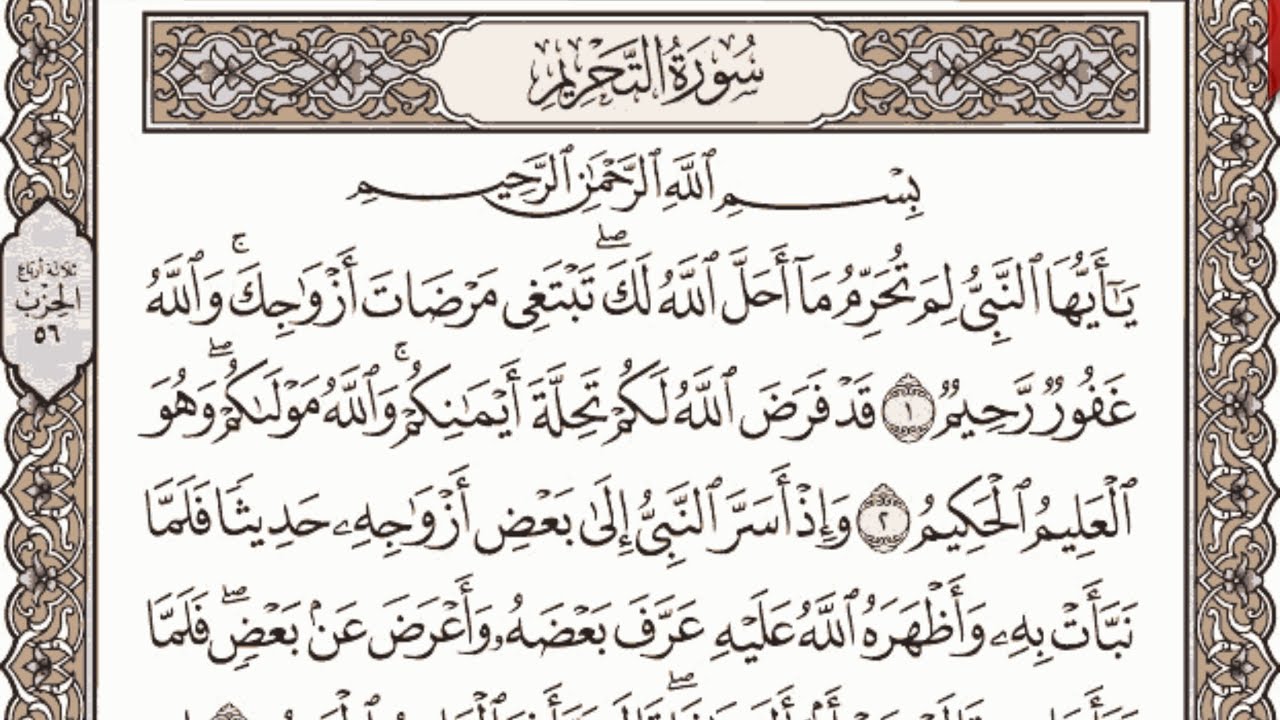 سُورَةُ التَّحْرِيمِ
بِسْمِ ٱللَّهِ ٱلرَّحْمَٰنِ ٱلرَّحِيمِ
يَٰٓأَيُّهَا ٱلنَّبِىُّ لِمَ تُحَرِّمُ مَآ أَحَلَّ ٱللَّهُ لَكَ ۖ تَبْتَغِى مَرْضَاتَ أَزْوَٰجِكَ ۚ وَٱللَّهُ
غَفُورٌ رَّحِيمٌ ١ قَدْ فَرَضَ ٱللَّهُ لَكُمْ تَحِلَّةَ أَيْمَٰنِكُمْ ۚ وَٱللَّهُ مَوْلَىٰكُمْ ۖ وَهُوَ
ٱلْعَلِيمُ ٱلْحَكِيمُ ٢ وَإِذْ أَسَرَّ ٱلنَّبِىُّ إِلَىٰ بَعْضِ أَزْوَٰجِهِۦ حَدِيثًا فَلَمَّا
نَبَّأَتْ بِهِۦ وَأَظْهَرَهُ ٱللَّهُ عَلَيْهِ عَرَّفَ بَعْضَهُۥ وَأَعْرَضَ عَنۢ بَعْضٍ ۖ فَلَمَّا
ثلاثة أرباع
الحِزْب
٥٦